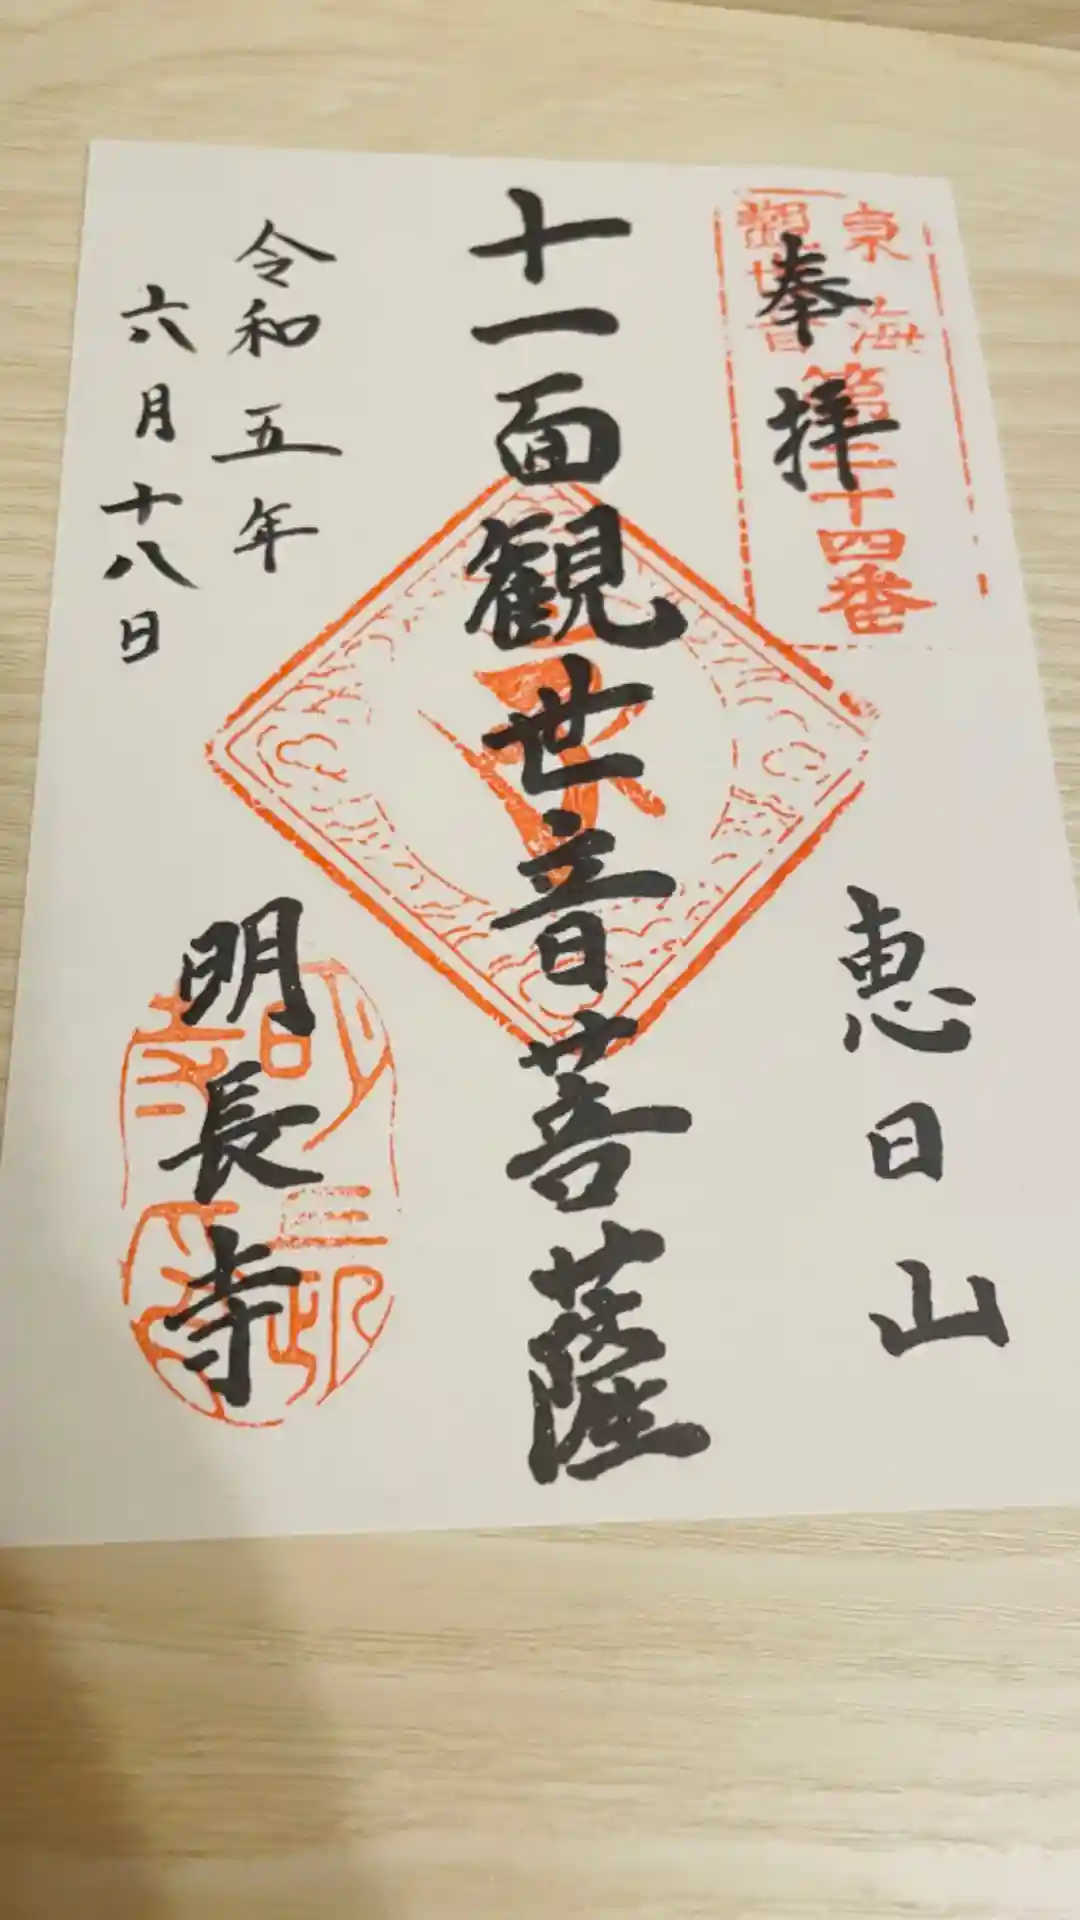 奉拝
東海
観世音
第三十四番
恵日山
十一面観世音菩薩
令和五年
六月十八日
明長寺